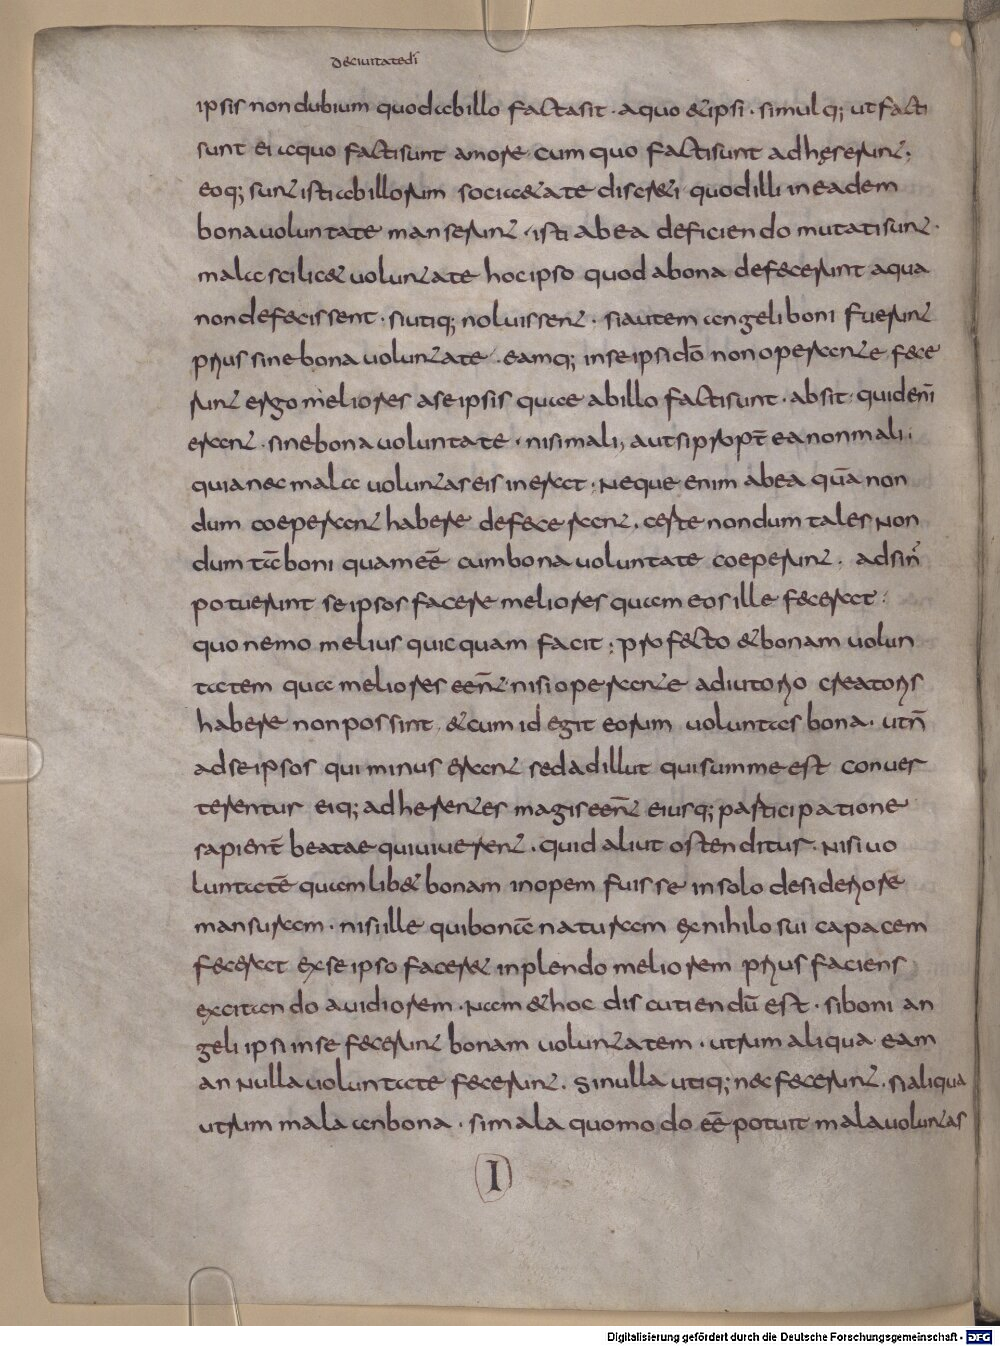 De ciuitate dī
ipsis non dubium quod ab illo facta sit · a quo & ipsi · simulq; ut facti
sunt ei a quo facti sunt amore cum quo facti sunt adhęserunt;
eoq; sunt isti ab illorum societate discreti quod illi in eadem
bona uoluntate manserunt · isti ab ea deficiendo mutati sunt ·
mala scilic& uoluntate hoc ipso quod a bona defecerunt a qua
non defecissent · si utiq; noluissent · si autem angeli boni fuerunt
prius sine bona uoluntate · eamq; in se ipsi dō non operante fece
runt ergo meliores a se ipsis quae ab illo facti sunt · absit · quid enī
erant · sine bona uoluntate · nisi mali, aut si propt̄ ea non mali ;
quia nec mala uoluntas eis inerat · Neque enim ab ea quā non
dum coeperant habere defecerant, certe nondum tales Non
dum tā boni quam eē̄ cum bona uoluntate coeperunt · ad si n̄
potuerunt se ipsos facere meliores quam eos ille fecerat :
quo nemo melius quicquam facit ; profecto & bonam uolun
tatem qua meliores eēnt nisi operante adiutorio creatoris
habere non possint · & cum id egit eorum uoluntas bona · ut n̄
ad se ipsos qui minus erant sed ad illut qui summe est conuer
terentur eiq; adherentes magis eēnt eiusq; participatione
sapient̄ beatae qui uiuerent · quid aliut ostenditur · Nisi uo
luntatē quamlib& bonam inopem fuisse in solo desiderore
mansuram · nisi ille qui bonā naturam ex nihilo sui capacem
fecerat ex se ipso facer& inplendo meliorem prius faciens
excitando auidiorem · Nam & hoc discutiendū est · si boni an
geli ipsi in se fecerunt bonam uoluntatem · utrum aliqua eam
an Nulla uoluntate fecerunt . Si nulla utiq; nec fecerunt . si aliqua
utrum mala an bona · si mala quomodo eē̄ potuit mala uoluntas
I
Digitalisierung gefördert durch die Deutsche Forschungsgemeinschaft - DFG